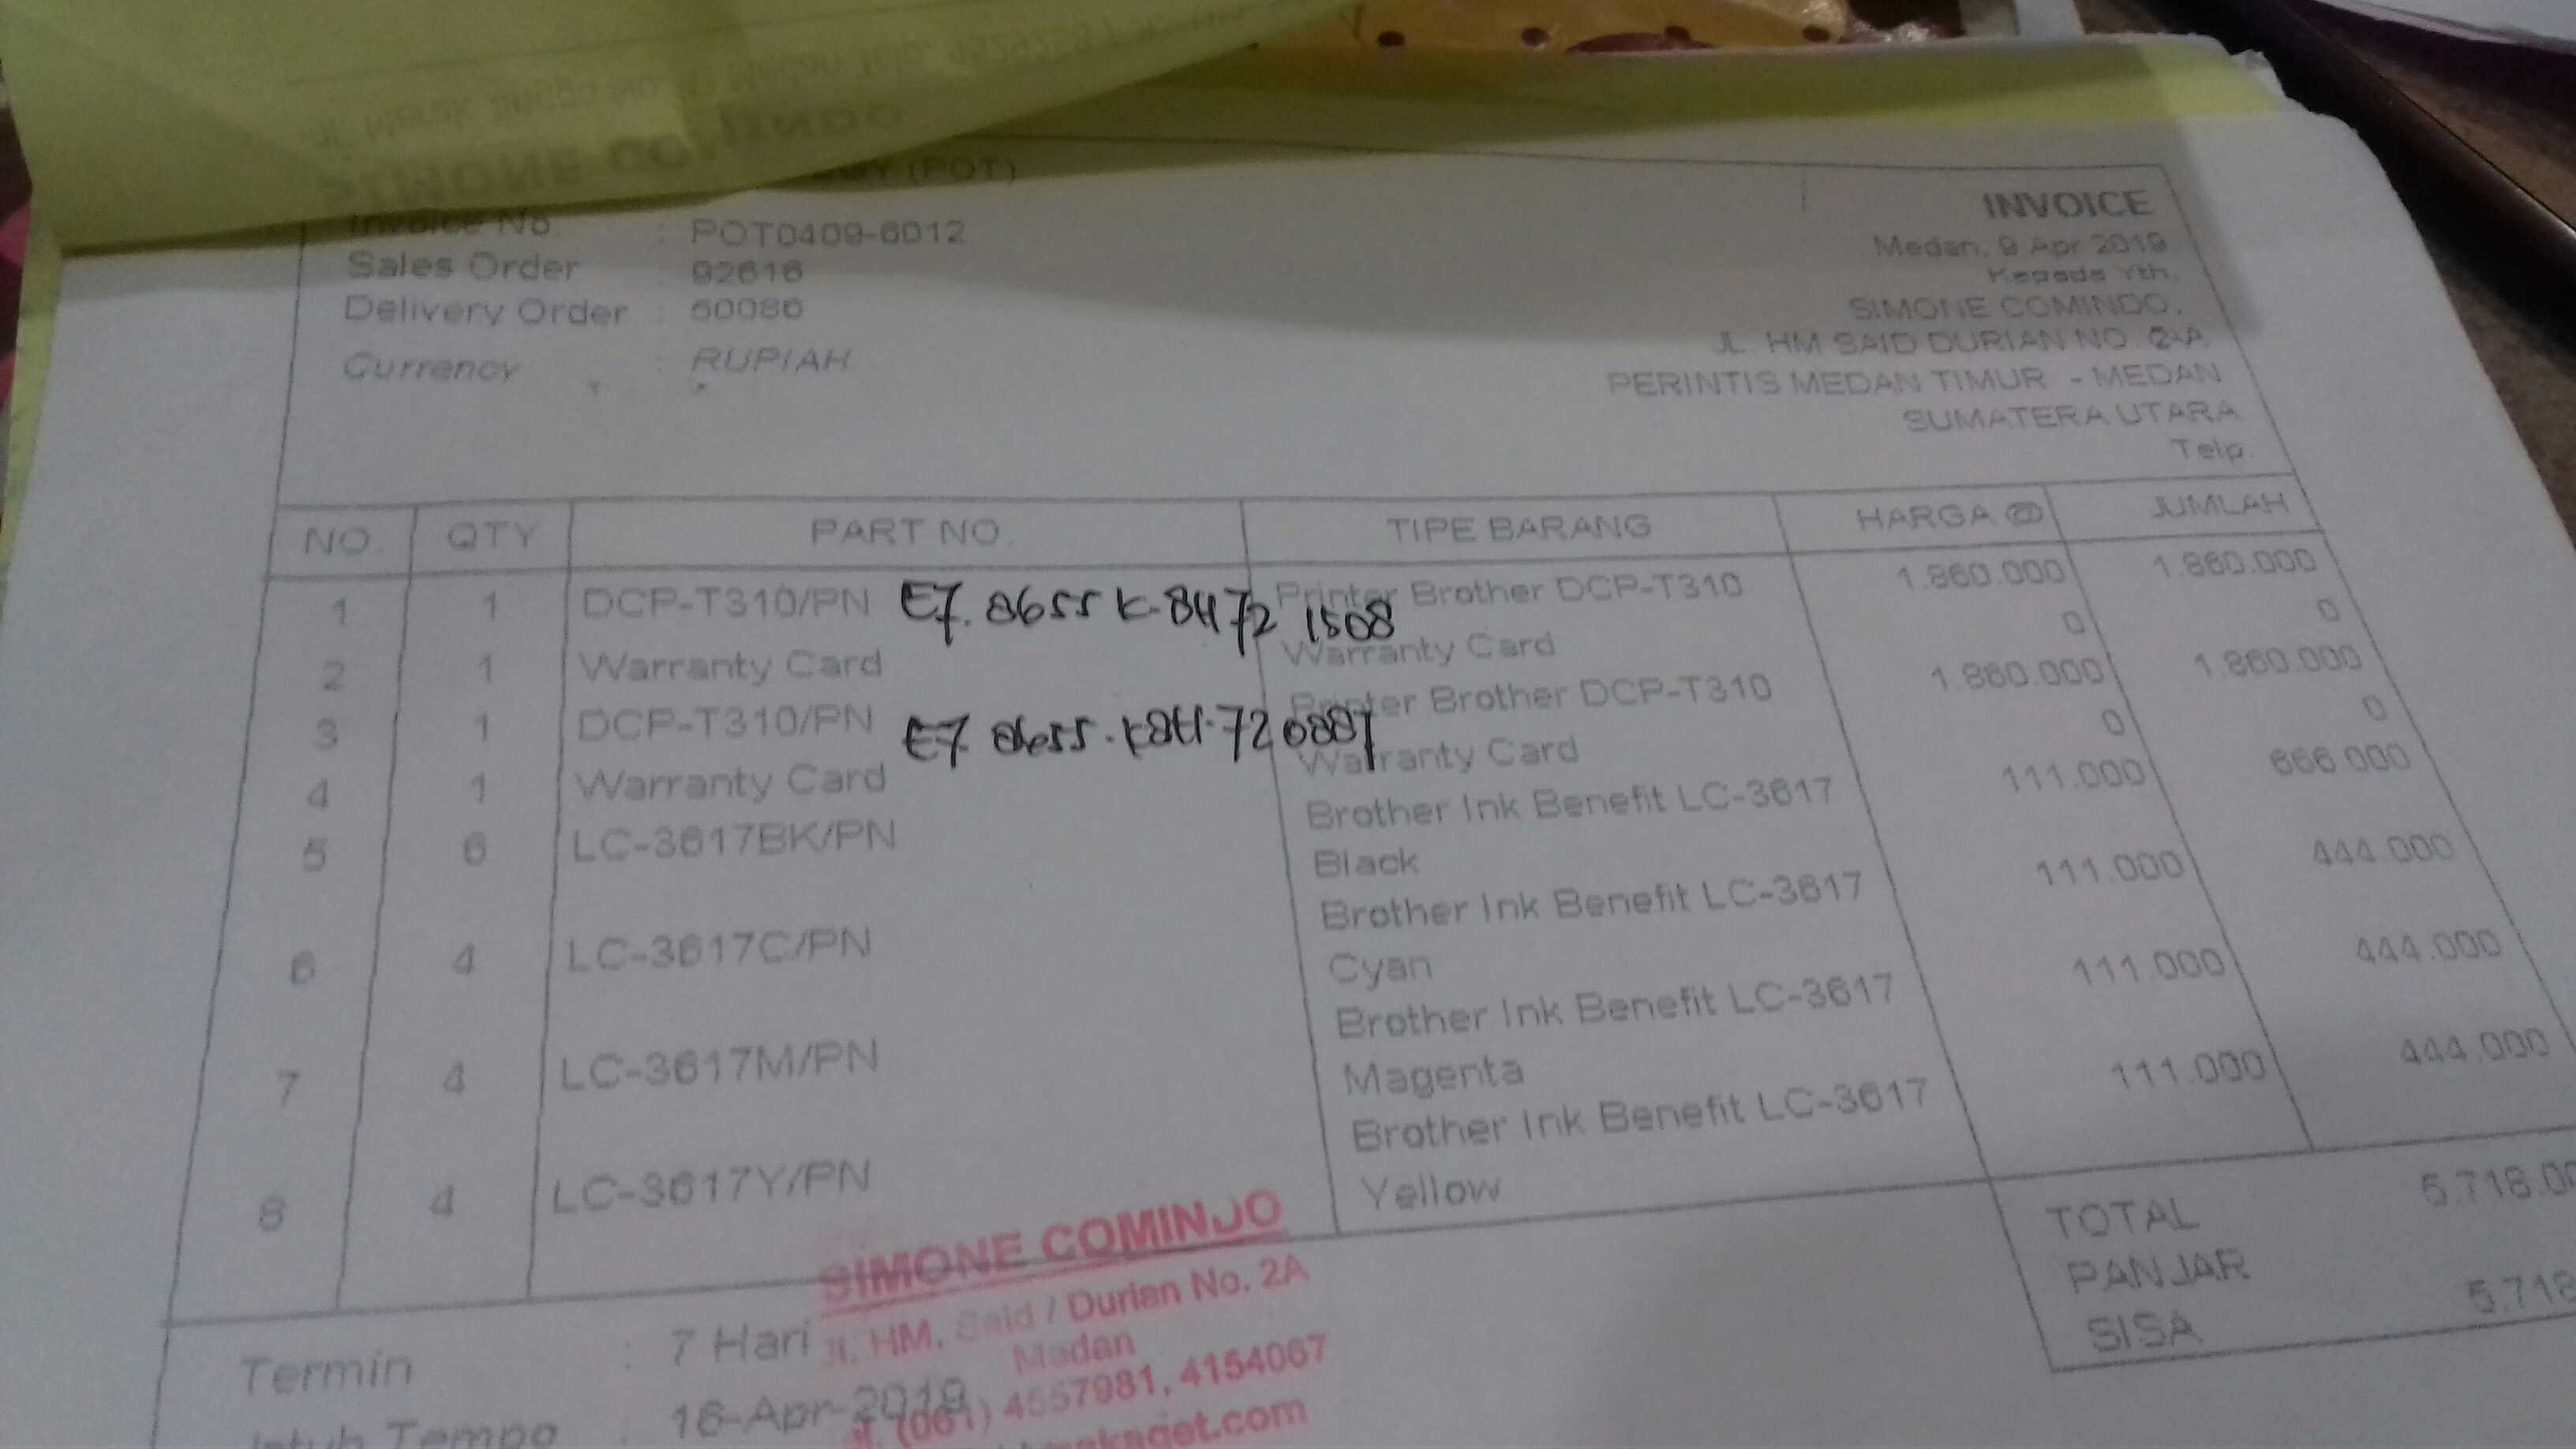 SIMONE COMINDO
(POT)
INVOICE
Invoice No. : POT0409-6012
Medan, 9 Apr 2019
Sales Order : 92616
Kepada Yth,
Delivery Order : 60086
SIMONE COMINDO,
Currency : RUPIAH
JL. HM SAID DURIAN NO. 2-A
PERINTIS MEDAN TIMUR - MEDAN
SUMATERA UTARA
Telp.
NO. QTY PART NO. TIPE BARANG HARGA @ JUMLAH
1 1 DCP-T310/PN Printer Brother DCP-T310 1.860.000 1.860.000
1508
2 1 Warranty Card Warranty Card 0 0
3 1 DCP-T310/PN Printer Brother DCP-T310 1.860.000 1.860.000
4 1 Warranty Card Warranty Card 0 0
5 6 LC-3617BK/PN Brother Ink Benefit LC-3617 111.000 666.000
Black
6 4 LC-3617C/PN Brother Ink Benefit LC-3617 111.000 444.000
Cyan
7 4 LC-3617M/PN Brother Ink Benefit LC-3617 111.000 444.000
Magenta
8 4 LC-3617Y/PN Brother Ink Benefit LC-3617 111.000 444.000
Yellow
TOTAL 5.718.00
PANJAR
SISA 5.718
Termin : 7 Hari
Jatuh Tempo : 16-Apr-2019
SIMONE COMINDO
Jl. HM. Said / Durian No. 2A
Medan
(061) 4557981, 4154067